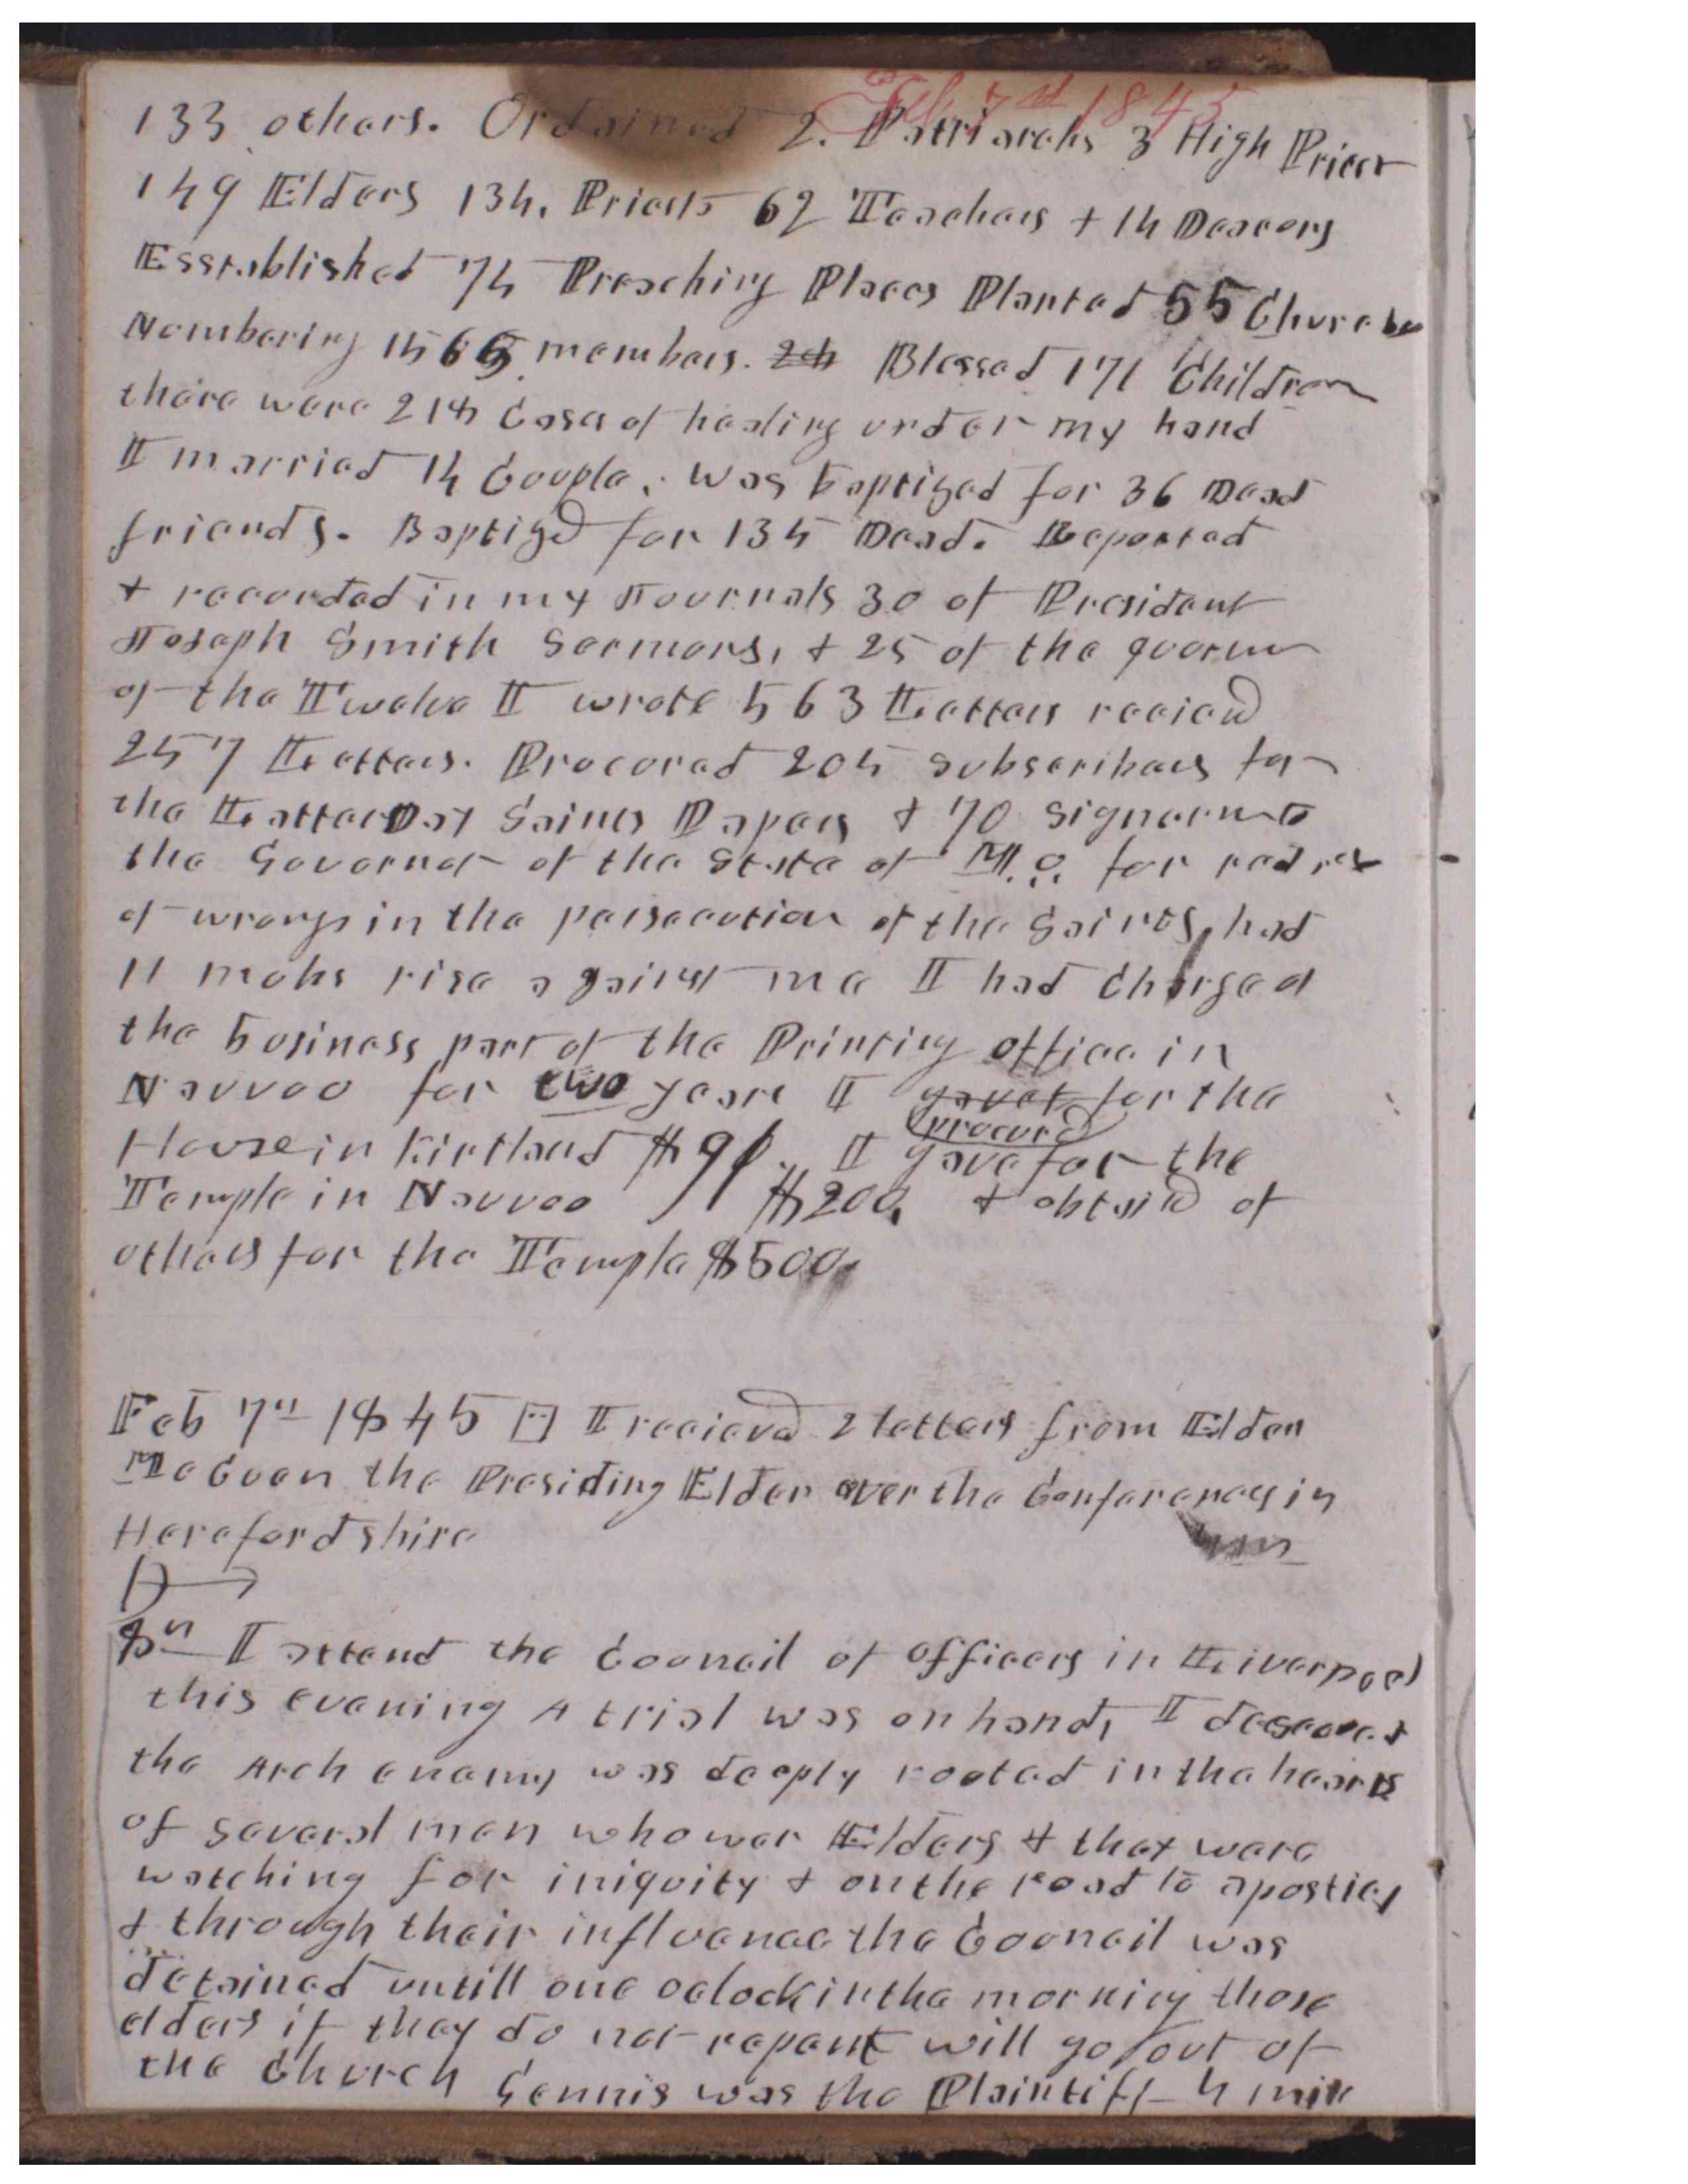 Feb 7th 1845
133 others. Ordained 2. Patriarchs 3 High Priest
149 Elders 134. Priests 62 Teachers & 14 Deacons
Esstablished 74 Preaching Places Planted 55 Churches
Numbering 1566 members. Blessed 171 Children
there were 214 Cases of healing under my hand
I married 14 Couple. was baptized for 36 Dead
friends. Baptized for 134 Dead. Reported
& recorded in my Journals 30 of President
Joseph Smith Sermons, & 25 of the quorum
of the Twelve I wrote 563 Letters recieved
247 Letters. Procured 204 subscribers for
the LatterDay Saints Papers & 70 signers to
the Governor of the State of Mo. for redress
of wrongs in the persecution of the Saints, had
11 mobs rise against me I had Charge of
the business part of the Printing office in
Nauvoo for two years I gave for the
procured
House in Kirtland $91. I gave for the
Temple in Nauvoo $200, & obtaind of
others for the Temple $500.
Feb 7th 1845 I recieved 2 letters from Elder
McGuen the Presiding Elder over the Conferences in
Herefordshire
8th I attend the Council of officers in Liverpool
this evening A trial was on hand,
the Arch enemy was deeply rooted in the hearts
of several men who wer Elders & that were
watching for iniquity & on the road to aposticy
& through their influence the Council was
detained untill one oclock in the morning those
elders if they do not repent will go out of
the Church was the Plaintiff 4 mile